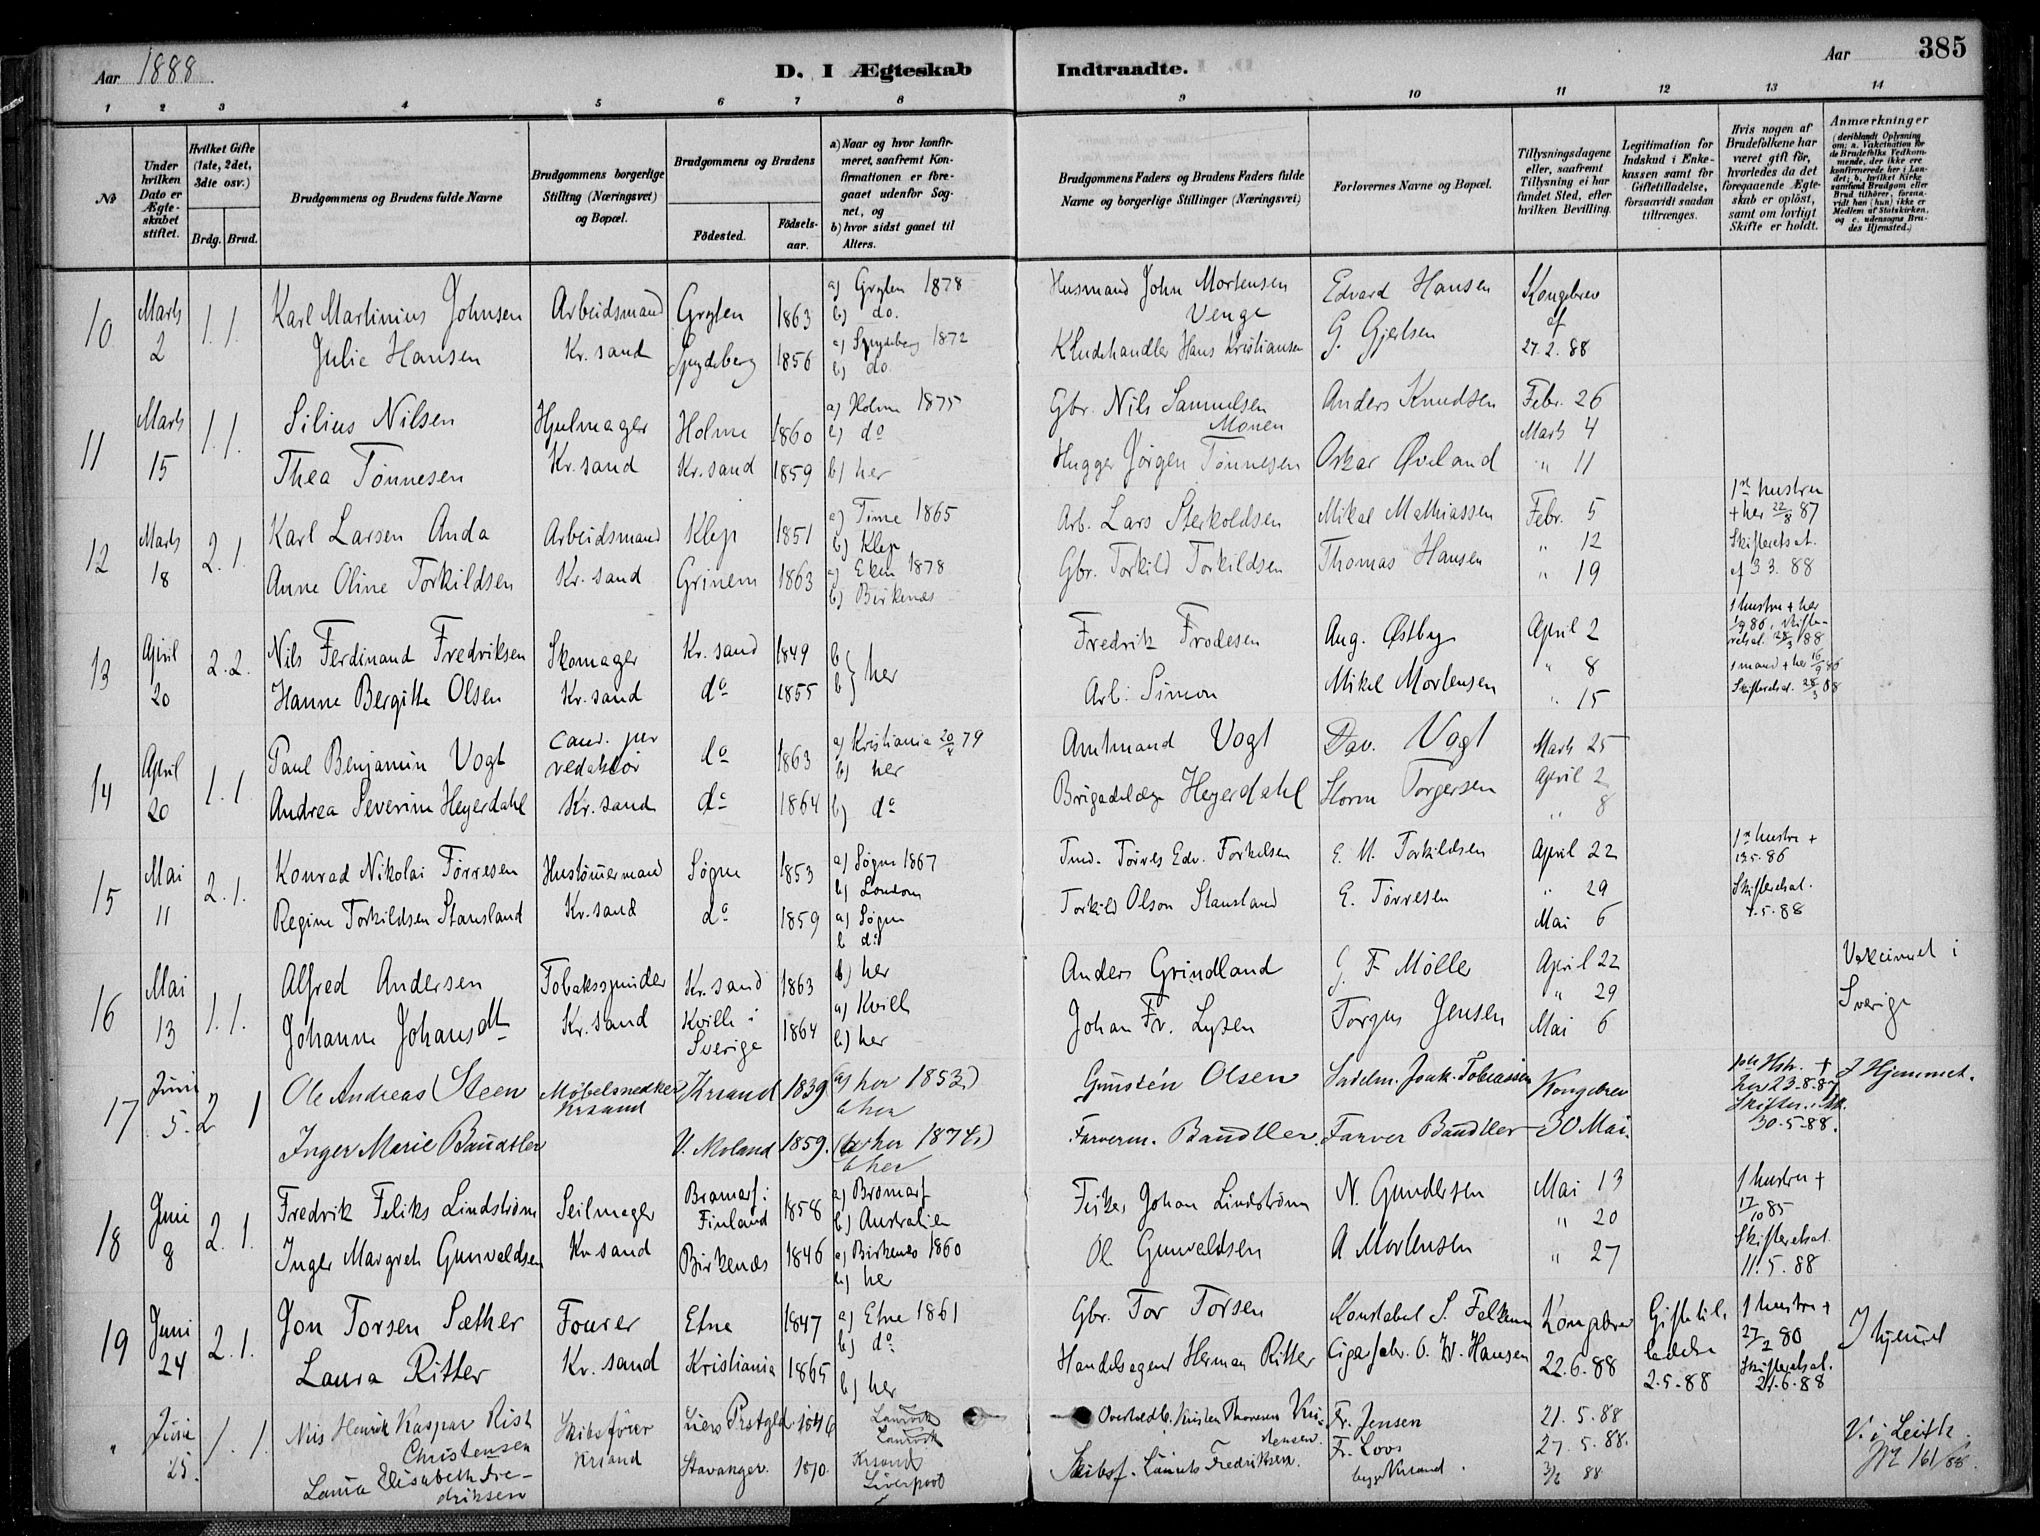 Aar 1888
D. I Ægteskab Indtraadte.
Aar 385
1 2 3 4 5 6 7 8 9 10 11 12 13 14
No
Under hvilken Dato er Ægteskabet stiftet.
Hvilket Gifte (1ste, 2det, 3die osv.)
Brdg. Brud.
Brudgommens og Brudens fulde Navne
Brudgommens borgerlige Stilling (Næringsvei) og Bopæl.
Brudgommens og Brudens
Fødested.
Fødselsaar.
a) Naar og hvor konfirmeret, saafremt Konfirmationen er foregaaet udenfor Sognet, og
b) hvor sidst gaaet til Alters.
Brudgommens Faders og Brudens Faders fulde Navne og borgerlige Stillinger (Næringsvei)
Forlovernes Navne og Bopæl.
Tillysningsdagene eller, saafremt Tillysning ei har fundet Sted, efter hvilken Bevilling.
Legitimation for Indskud i Enkekassen samt for Giftetilladelse, forsaavidt saadan tiltrænges.
Hvis nogen af Brudefolkene har været gift før, hvorledes da det foregaaende Ægteskab er opløst, samt om lovligt Skifte er holdt.
Anmærkninger (deriblandt Oplysning om; a. Vakcination for de Brudefolks Vedkommende, der ikke ere konfirmerede her i Landet; b. hvilket Kirkesamfund Brudgom eller Brud tilhører, forsaavidt han (hun) ikke er Medlem af Statskirken, og c. udensogns Brudes Hjemsted.)
10 Marts 2 1. 1. Karl Martinius Johnsen Arbeidsmand Gryten 1863 a) Gryten 1878 b) do. Husmand John Mortensen Venge Edvard Hansen Kongebrev
Julie Hansen Kr. sand Spydeberg 1856 a) Spydeberg 1872 b) do. Kludehandler Hans Kristiansen G. Gjelsen af 27. 2. 88
11 Marts 15 1. 1. Silius Nilsen Hjulmager Holme 1860 a) Holme 1875 b) do Gbr. Nils Samuelsen Monen Anders Knudsen Febr. 26 Marts 4
Thea Tønnesen Kr. sand Kr. sand 1859 b) her Hugger Jørgen Tønnesen Oskar Øveland " 11
12 Marts 18 2. 1. Karl Larsen Anda Arbeidsmand Klep 1851 a) Time 1865 b) Klep Arb. Lars Sterkoldsen Mikal Mathiassen Febr. 5 " 12 1st hustru + her 22/8 87
Anne Oline Torkildsen Kr. sand Grinem 1863 a) Eken 1878 b) Birkenæs Gbr. Torkild Torkildsen Thomas Hansen " 19 Skifteretsat. af 3 3. 88
13 April 20 2. 2. Nils Ferdinand Fredriksen Skomager Kr. sand 1849 b) her Fredrik Frodesen Aug. Østbye April 2 " 8 1 hustru + her
Hanne Bergitte Olsen Kr. sand do 1855 b) Arb. Simon Mikel Mortensen " 15 1 mand + her 16/9 86 Skifteretsat. 28/3 88
14 April 20 1. 1. Paul Benjamin Vogt cand. jur redaktør do 1863 a) Kristiania 20/4 79 b) her Amtmand Vogt Dav. Vogt Marts 25
Andrea Severine Heyerdahl Kr. sand do 1864 b) do Brigadelæge Heyerdahl Storm Torgersen April 2 " 8
15 Mai 11 2. 1. Konrad Nikolai Tørresen Hustømermand Søgne 1853 a) Søgne 1867 b) London Tørres Edv. Torkelsen E. M. Torkildsen April 22 1st hustru + 13.5.86
Regine Torkildsen Stausland Kr. sand do 1859 a) Søgne b do Torkild Olson Stausland E. Tørresen " 29 Mai 6 Skifteretsat. 4. 5. 88
16 Mai 13 1. 1. Alfred Andersen Tobaksspinder Kr. sand 1863 b) her Anders Grindland J. F. Møller April 22 " 29 Vakcinert i Sverige
Johanne Johansdt Kr. sand Kville i Sverige 1864 a) Kville b) her Johan Fr. Torgus Jensen Mai 6
17 Juni 5. 2 1 Ole Andreas Steen Møbelsnedker Krsand Krsand 1839 (a) her 1853.) b her Gunstén Olsen Sadelm. Joak. Tobiassen Kongebrev + her 23-8-87 30-5-88. I Hjemmet.
Inger Marie Baudtler V. Moland 1859. (a her 1874.) b her Farverm. Baudtler. Farver Baudtler 30 Mai.
18 Juni 8 2. 1. Fredrik Feliks Lindstrøm Seilmager Bromarf i Finland 1858 a) Bromarf b) Australien Fisker Johan Lindstrøm N. Gundersen Mai 13 " 20 1 hustru + 17/10 85
Inger Margreth Gunvaldsen Kr. sand Birkenæs 1846 a) Birkenes 1860 b) her Ol Gunvaldsen A Mortensen " 27 Skifteretsat. 11. 5. 88
19 Juni 24 2. 1. Jon Torsen Sæther Fourer Etne 1847 a) Etne 1861 b) do Gbr. Tor Torsen Konstabel S. Kongebrev Giftetilladelse 2. 5. 88 1 hustru + 27/2 80 I hjemmet
Laura Ritter Kr. sand Kristiania 1865 b) her Handelsagent Herman Ritter Cigarfabr. O. Kr. Hansen 22. 6. 88 Skifteretsat. 21. 6. 88
" Juni 25. 1. 1. Nils Henrik Kaspar Rist Christensen Skibsfører Krsand Liers Prstgld. 1846 Laurvik Laurvik Kristen Thoresen Kristensen. Fr. Jensen 21. 5. 88
Laura Elisabeth Fredriksen Stavanger. 1870. Krsand Liverpool Skibsf. Laurits Fredriksen. Fr. Loos begge Krsand. 27. 5. 88. 3/6 88 V. i Leith. 161/88.